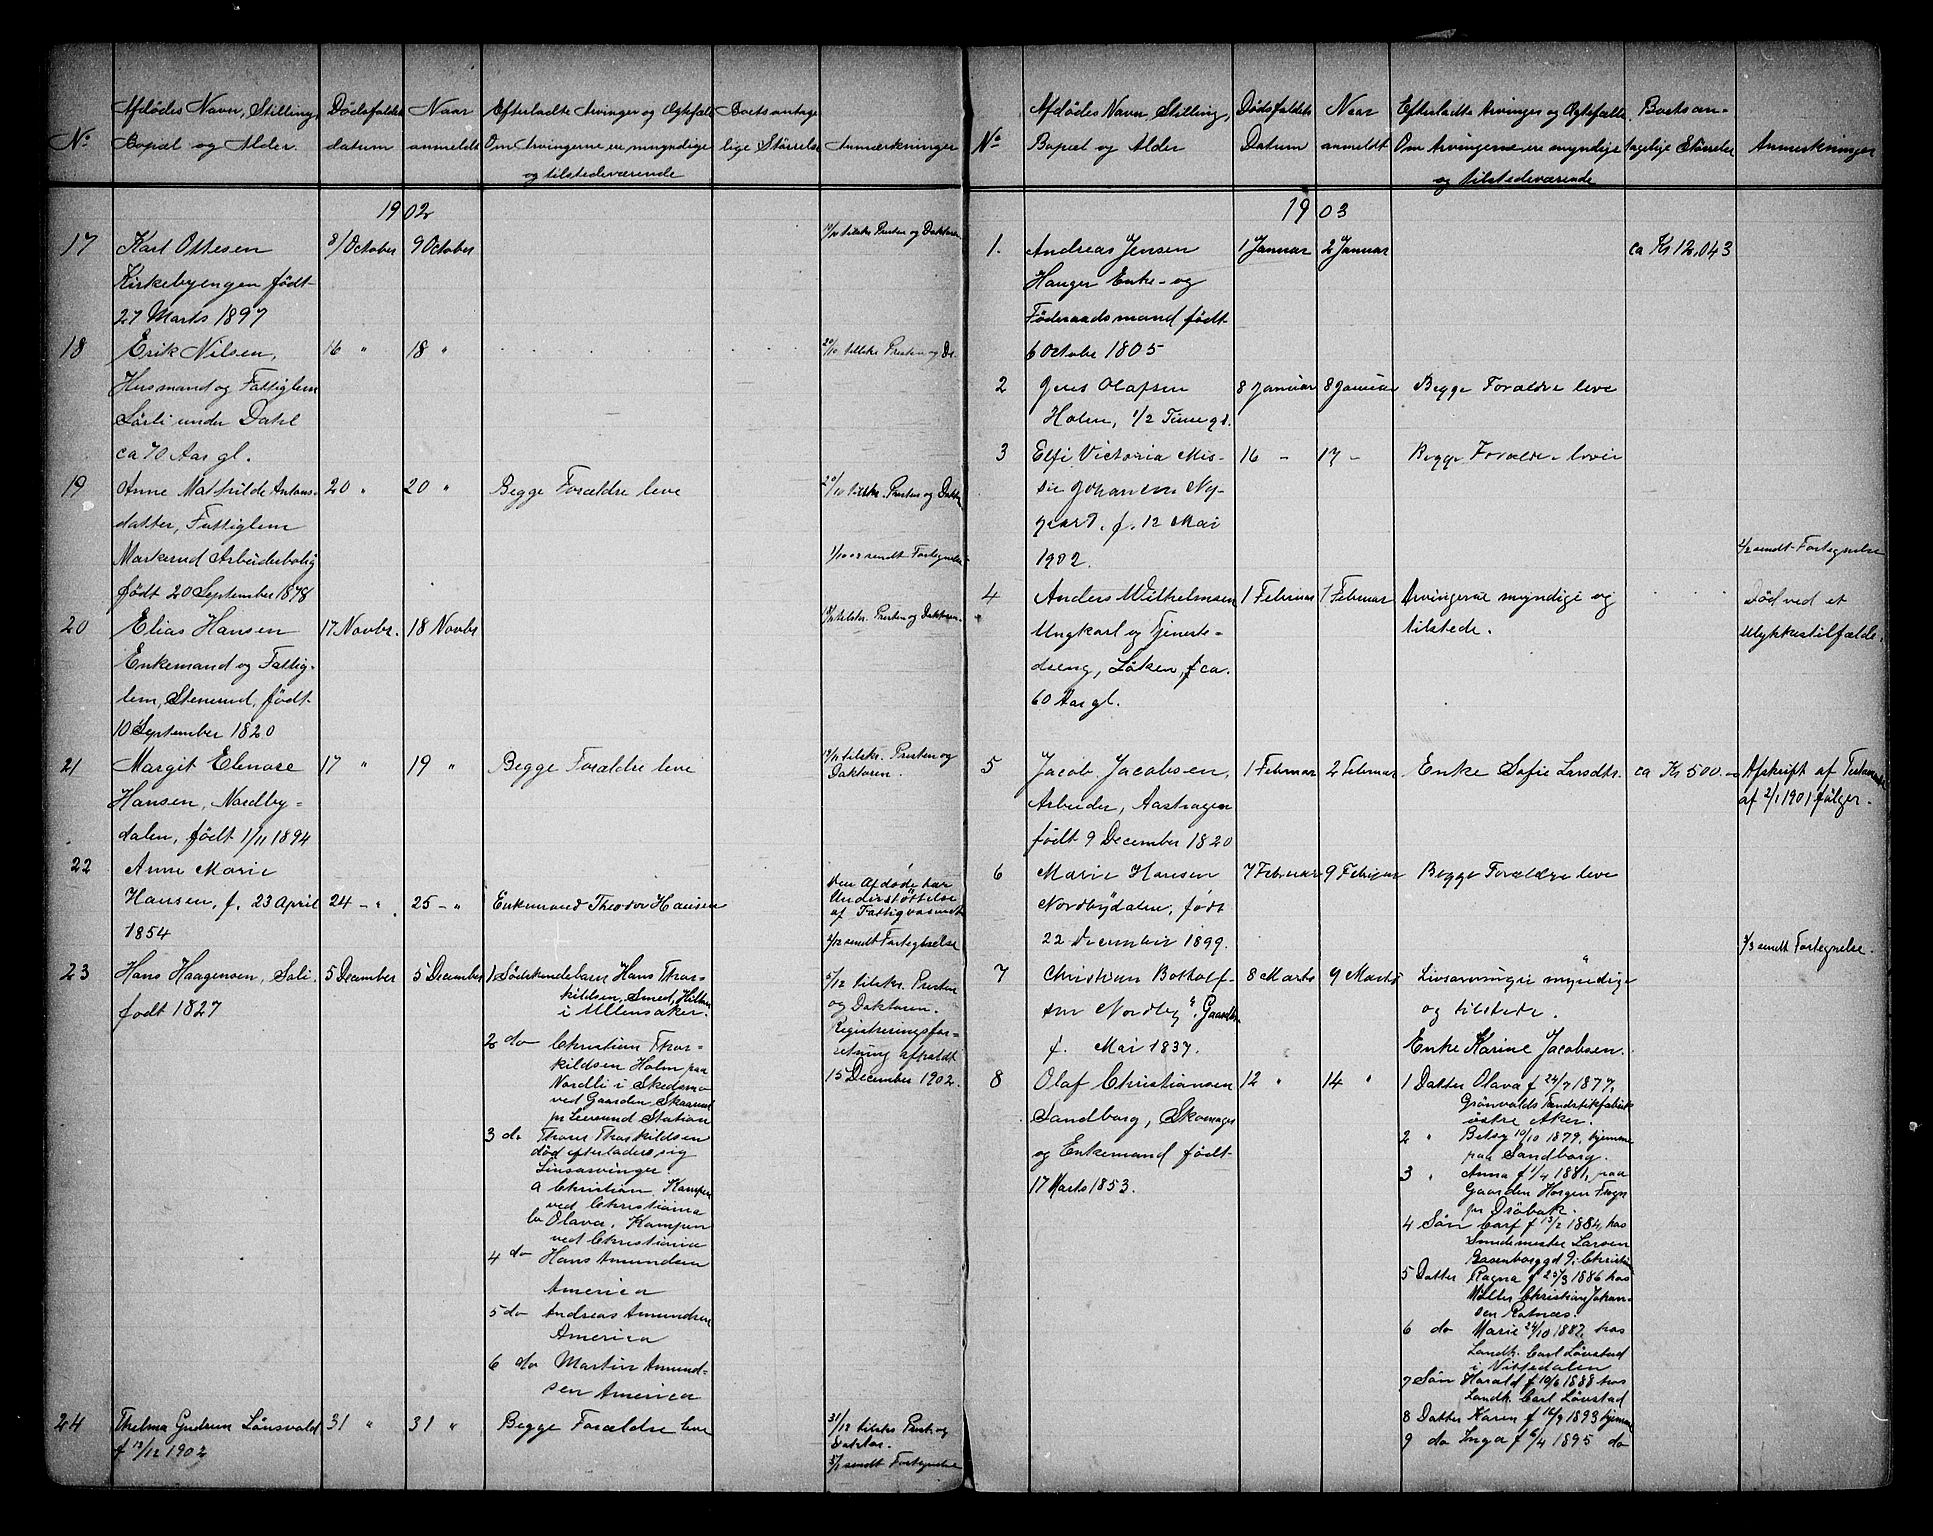 No.
Afdødes Navn, Stilling,
Bopæl og Alder.
Dødsfaldets
datum
Naar
anmeldt
Efterladte Arvinger og Ægtefælle
Om Arvingerne ere myndige
og tilstedeværende
Boets antage
lige Størrelse
Anmærkninger
1902
17
Karl Ottesen
Kirkebyengen født
27 Marts 1897
8/October
9 October
tilskr. Presten og Doktoren
18
Erik Nilsen,
Husmand og Fattiglem
Sørli under Dahl
ca 70 Aar gl.
16 "
18 "
20/10 tilskr Presten og Dr.
19
Anne Mathilde Antons-
datter, Fattiglem
Markerud Arbeiderbolig
født 20 September 1878
20 "
20 "
Begge Forældre leve
20/10 tilskr. Presten og Doktor
1/10 02 sendt Fortegnelse
20
Elias Hansen
Enkemand og Fattig-
lem, Stenrud, født
10 September 1820
17 Novbr.
18 Novbr
tilskr. Presten og Doktoren.
21
Margit Elenore
Hansen, Nordby=
dalen, født 1/11 1894
17 "
19 "
Begge Forældre leve
19/11 tilskr. Presten og
Doktoren.
22
Anne Marie
Hansen, f. 23 April
1854
24 - "
25 - "
Enkemand Theodor Hansen
Den Afdøde har
Understöttelse
af Fattigvæsenet
2/12 sendt Fortegnelse
23
Hans Haagensen, Søli
født 1827
5 December
5 December
1 Södskendebarn Hans Thor-
kildsen, Smed, Hilton
i Ullensaker.
2 do Christian Thor=
kildsen Holm paa
Nordli i Skedsmo
ved Gaarden Skaarud
pr Leersund Station
3 do Thorer Thorkildsen
død efterlader sig
Livsarvinger.
a Christian, Kampen
ved Christiania
b Olava, Kampen
ved Christiania
4 do Hans Amundsen
America
5 do Andreas Amundsen
America
6 do Martin Amund-
sen America
5/12 tilskr. Presten
og Doktoren.
Registreringsfor-
retning afholdt
15 December 1902.
24
Thelma Gudrun Lönsvold
f 13/12 1902
31 "
31 "
Begge Forældre leve
31/12 tilskr Prest. og
Doktor.
sendt Fortegnelse
No.
Afdødes Navn Stilling,
Bopæl og Alder
Dødsfaldets
Datum
Naar
anmeldt
Efterladte Arvinger og Ægtefælle.
Om Arvingerne ere myndige
og tilstedeværende
Boets an-
tagelige Størrelse
Anmerkninger
1903
1.
Andreas Jensen
Hauger Enke- og
Føderaadsmand født
6 Octobe 1805
1 Januar
2 Januar
ca Kr 12,043
2
Jens Olafsen
Holm, 1/2 Time gl.
8 Januar
8 Januar
Begge Forældre leve
3
Elfi Victoria Mis-
sie Johansen Ny-
gaard. f. 12 Mai
1902.
16 -
17 -
Begge Forælde leve
1/2 sendt Fortegnelse
4
Anders Wilhelmsen
Ungkarl og Tjeneste-
dreng, Løken, f ca.
60 Aar gl.
1 Februar
1 Februar
Arvingerne myndige og
tilstede.
Død ved et
Ulykkestilfælde.
5
Jacob Jacobsen,
Arbeider, Aastvagen
født 9 December 1820
1 Februar
2 Februar
Enke Sofie Larsdtr.
ca Kr 500.-
Afskrift af Testamente
af 2/1 1901 følger.
6
Marie Hansen
Nordbydalen, født
22 December 1899.
7 Februar
9 Februar
Begge Forældre leve
1/3 sendt Fortegnelse.
7
Christian Bottolf-
sen Nordby, Gaardbr.
f. Mai 1837.
8 Marts
9 Marts
Livsarvinger myndige
og tilstede.
Enke Karine Jacobsen.
8
Olaf Christiansen
Sandborg, Skomager
og Enkemand født
17 Marts 1853.
12 "
14 "
1 Datter Olava f 24/7 1877,
Grönvolds Tændstikfabrik
østre Aker.
2 " Betsy 10/10 1879, hjemme
paa Sandborg.
3 " Anna f 1/4 1881, paa
Gaarden Horgen Frogn
pr Drøbak.
4 Søn Carl f 13/2 1884, hos
Smedemester Larsen
9 i Christia
5 Datter Ragna f 25/3 1886 hos
Møller Christian Johan-
sen Rotnæs.
6 do Marie 24/10 1887, hos
Landh. Carl Løvstad
i Nittedalen
7 Søn Harald f 10/6 1888 hos
Landh. Carl Løvstad
8 Datter Karen f 16/9 1893 hjemme
9 do Inga f 6/4 1895 do